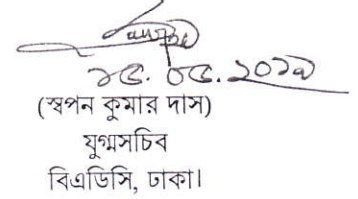 ১৫.০৫.২০১৯
(স্বপন কুমার দাস)
যুগ্মসচিব
বিএডিসি, ঢাকা।